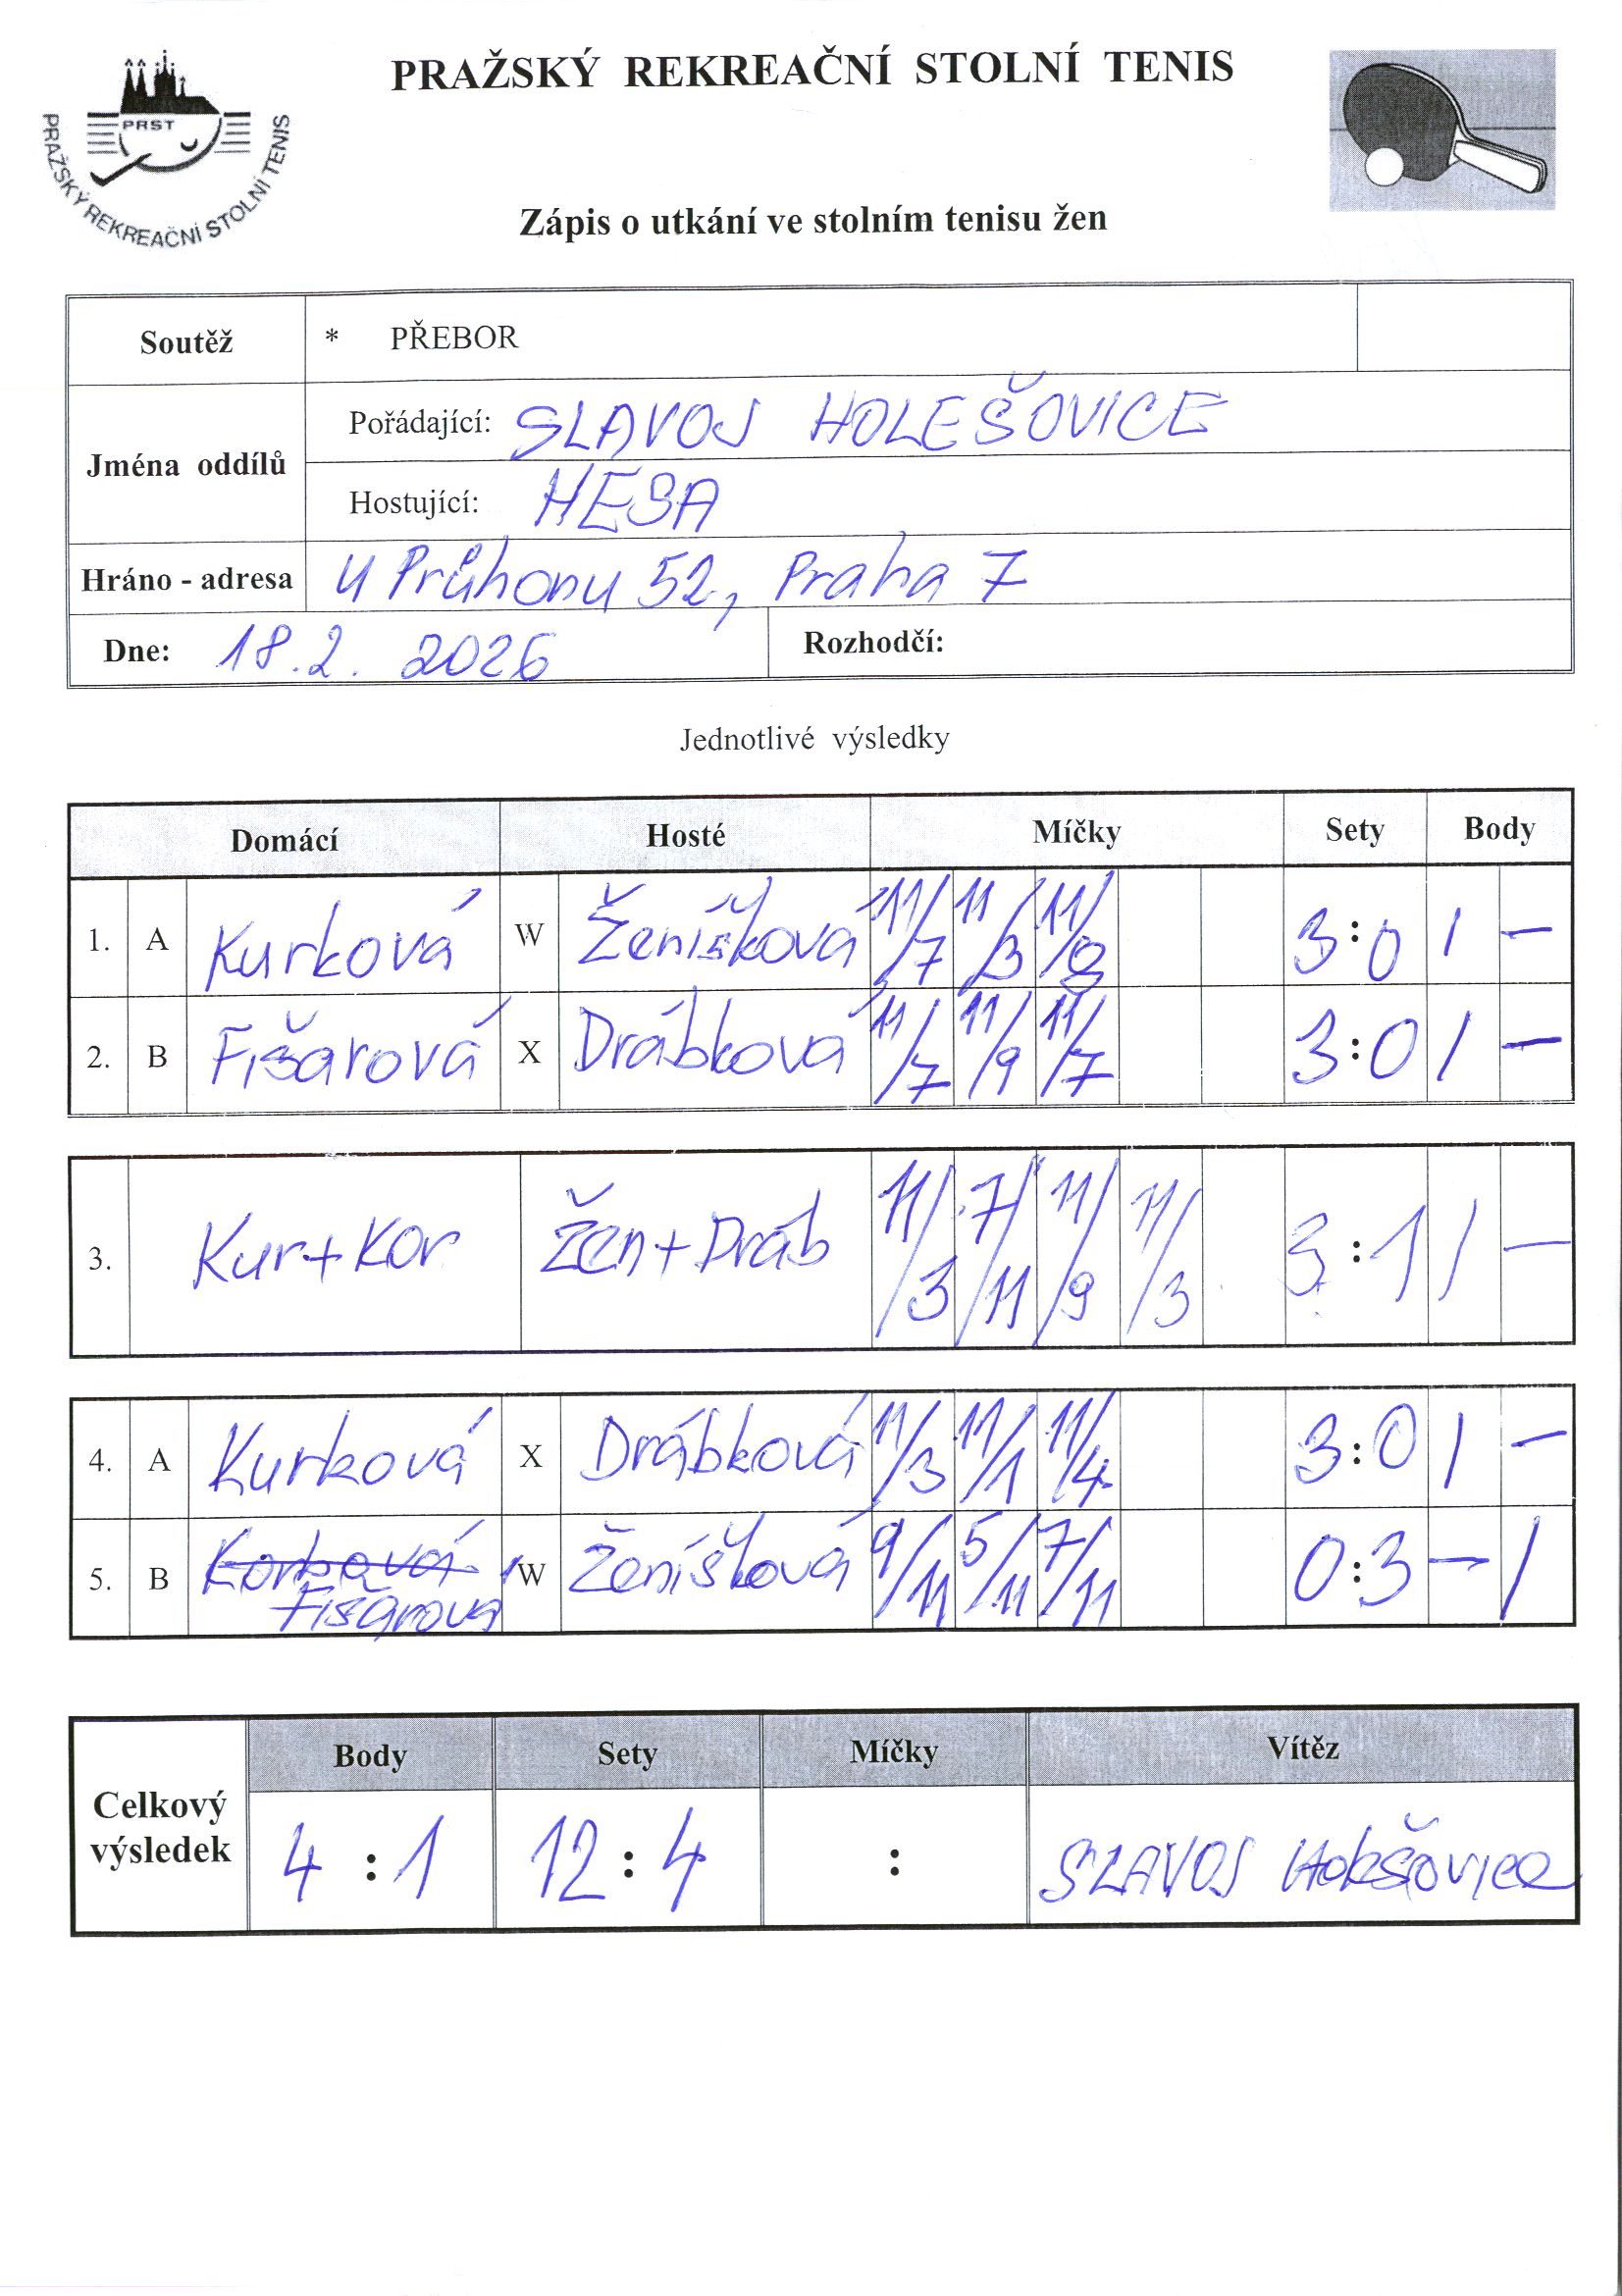 PRAŽSKÝ REKREAČNÍ STOLNÍ TENIS
PRST
PRAŽSKÝ REKREAČNÍ STOLNÍ TENIS
Zápis o utkání ve stolním tenisu žen
Soutěž * PŘEBOR
Jména oddílů
Pořádající: SLAVOJ HOLEŠOVICE
Hostující: HESA
Hráno - adresa U Průhonu 52, Praha 7
Dne: 18.2. 2026 Rozhodčí:
Jednotlivé výsledky
Domácí Hosté Míčky Sety Body
1. A Kurková W Ženíšková 11/7 11/3 11/8 3:0 1 -
2. B Fišarová X Drábková 11/7 11/9 11/7 3:0 1 -
3. Kur+Kor Žen+Dráb 11/3 7/11 11/9 11/3 3:1 1 -
4. A Kurková X Drábková 11/3 11/1 11/4 3:0 1 -
5. B Korbová W Ženíšková 9/11 5/11 7/11 0:3 - 1
Fišarova
Body Sety Míčky Vítěz
Celkový výsledek 4:1 12:4 : SLAVOJ Holešovice